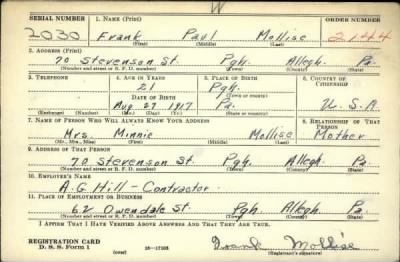 W
SERIAL NUMBER 1. NAME (Print) ORDER NUMBER
2030 Frank Paul Mollise 2144
(First) (Middle) (Last)
2. ADDRESS (Print)
70 Stevenson St. Pgh. Allegh. Pa.
(Number and street or R. F. D. number) (Town) (County) (State)
3. TELEPHONE 4. AGE IN YEARS 5. PLACE OF BIRTH 6. COUNTRY OF CITIZENSHIP
21 Pgh.
DATE OF BIRTH (Town or county)
Aug 27 1917 Pa. U.S.A
(Exchange) (Number) (Mo.) (Day) (Yr.) (State or country)
7. NAME OF PERSON WHO WILL ALWAYS KNOW YOUR ADDRESS 8. RELATIONSHIP OF THAT PERSON
Mrs. Minnie Mollise Mother
(Mr., Mrs., Miss) (First) (Middle) (Last)
9. ADDRESS OF THAT PERSON
70 Stevenson St. Pgh. Allegh. Pa.
(Number and street or R. F. D. number) (Town) (County) (State)
10. EMPLOYER'S NAME
A. G. Hill - Contractor.
11. PLACE OF EMPLOYMENT OR BUSINESS
62 Owendale St. Pgh. Allegh. Pa.
(Number and street or R. F. D. number) (Town) (County) (State)
I AFFIRM THAT I HAVE VERIFIED ABOVE ANSWERS AND THAT THEY ARE TRUE.
REGISTRATION CARD
D. S. S. Form 1 (over) 16—17105 Frank Mollise
(Registrant's signature)